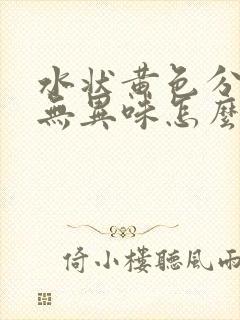 水状黄色分
無異味怎麼
倚小樓聽風雨